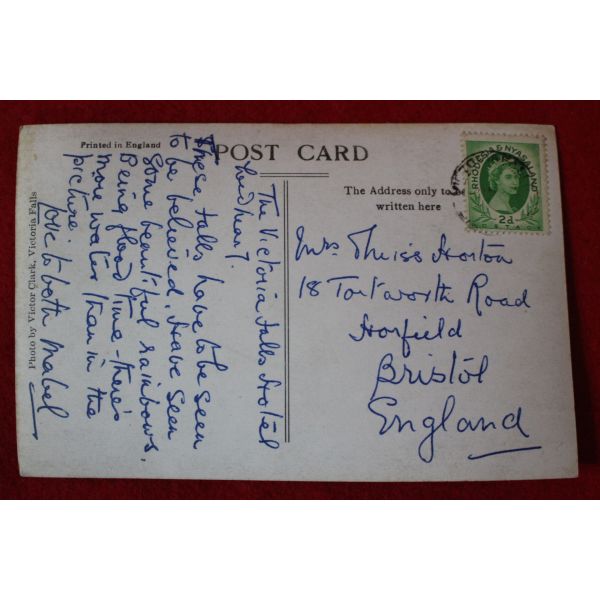 Printed in England
POST CARD
The Address only to be
written here
RHODESIA & NYASALAND
2d
The Victoria Falls Hotel
Sunday 7.
These falls have to be seen
to be believed. Have seen
some beautiful rainbows.
Being flood time - there's
more water than in the
picture.
Love to both Mabel
Mrs Horton
18 Tortworth Road
Horfield
Bristol
England
Photo by Victor Clark, Victoria Falls